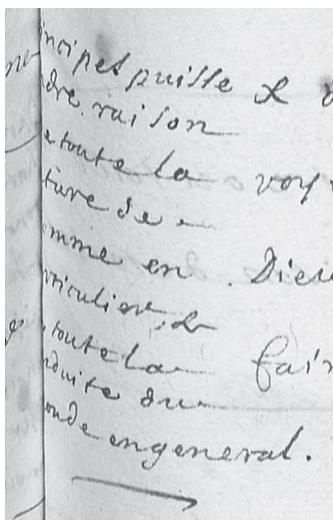 incipes puisse &
dre raison
e toute la voy
ture de
mme en Dieu
rticulier, &
toute la fair
nduite du
onde en general.